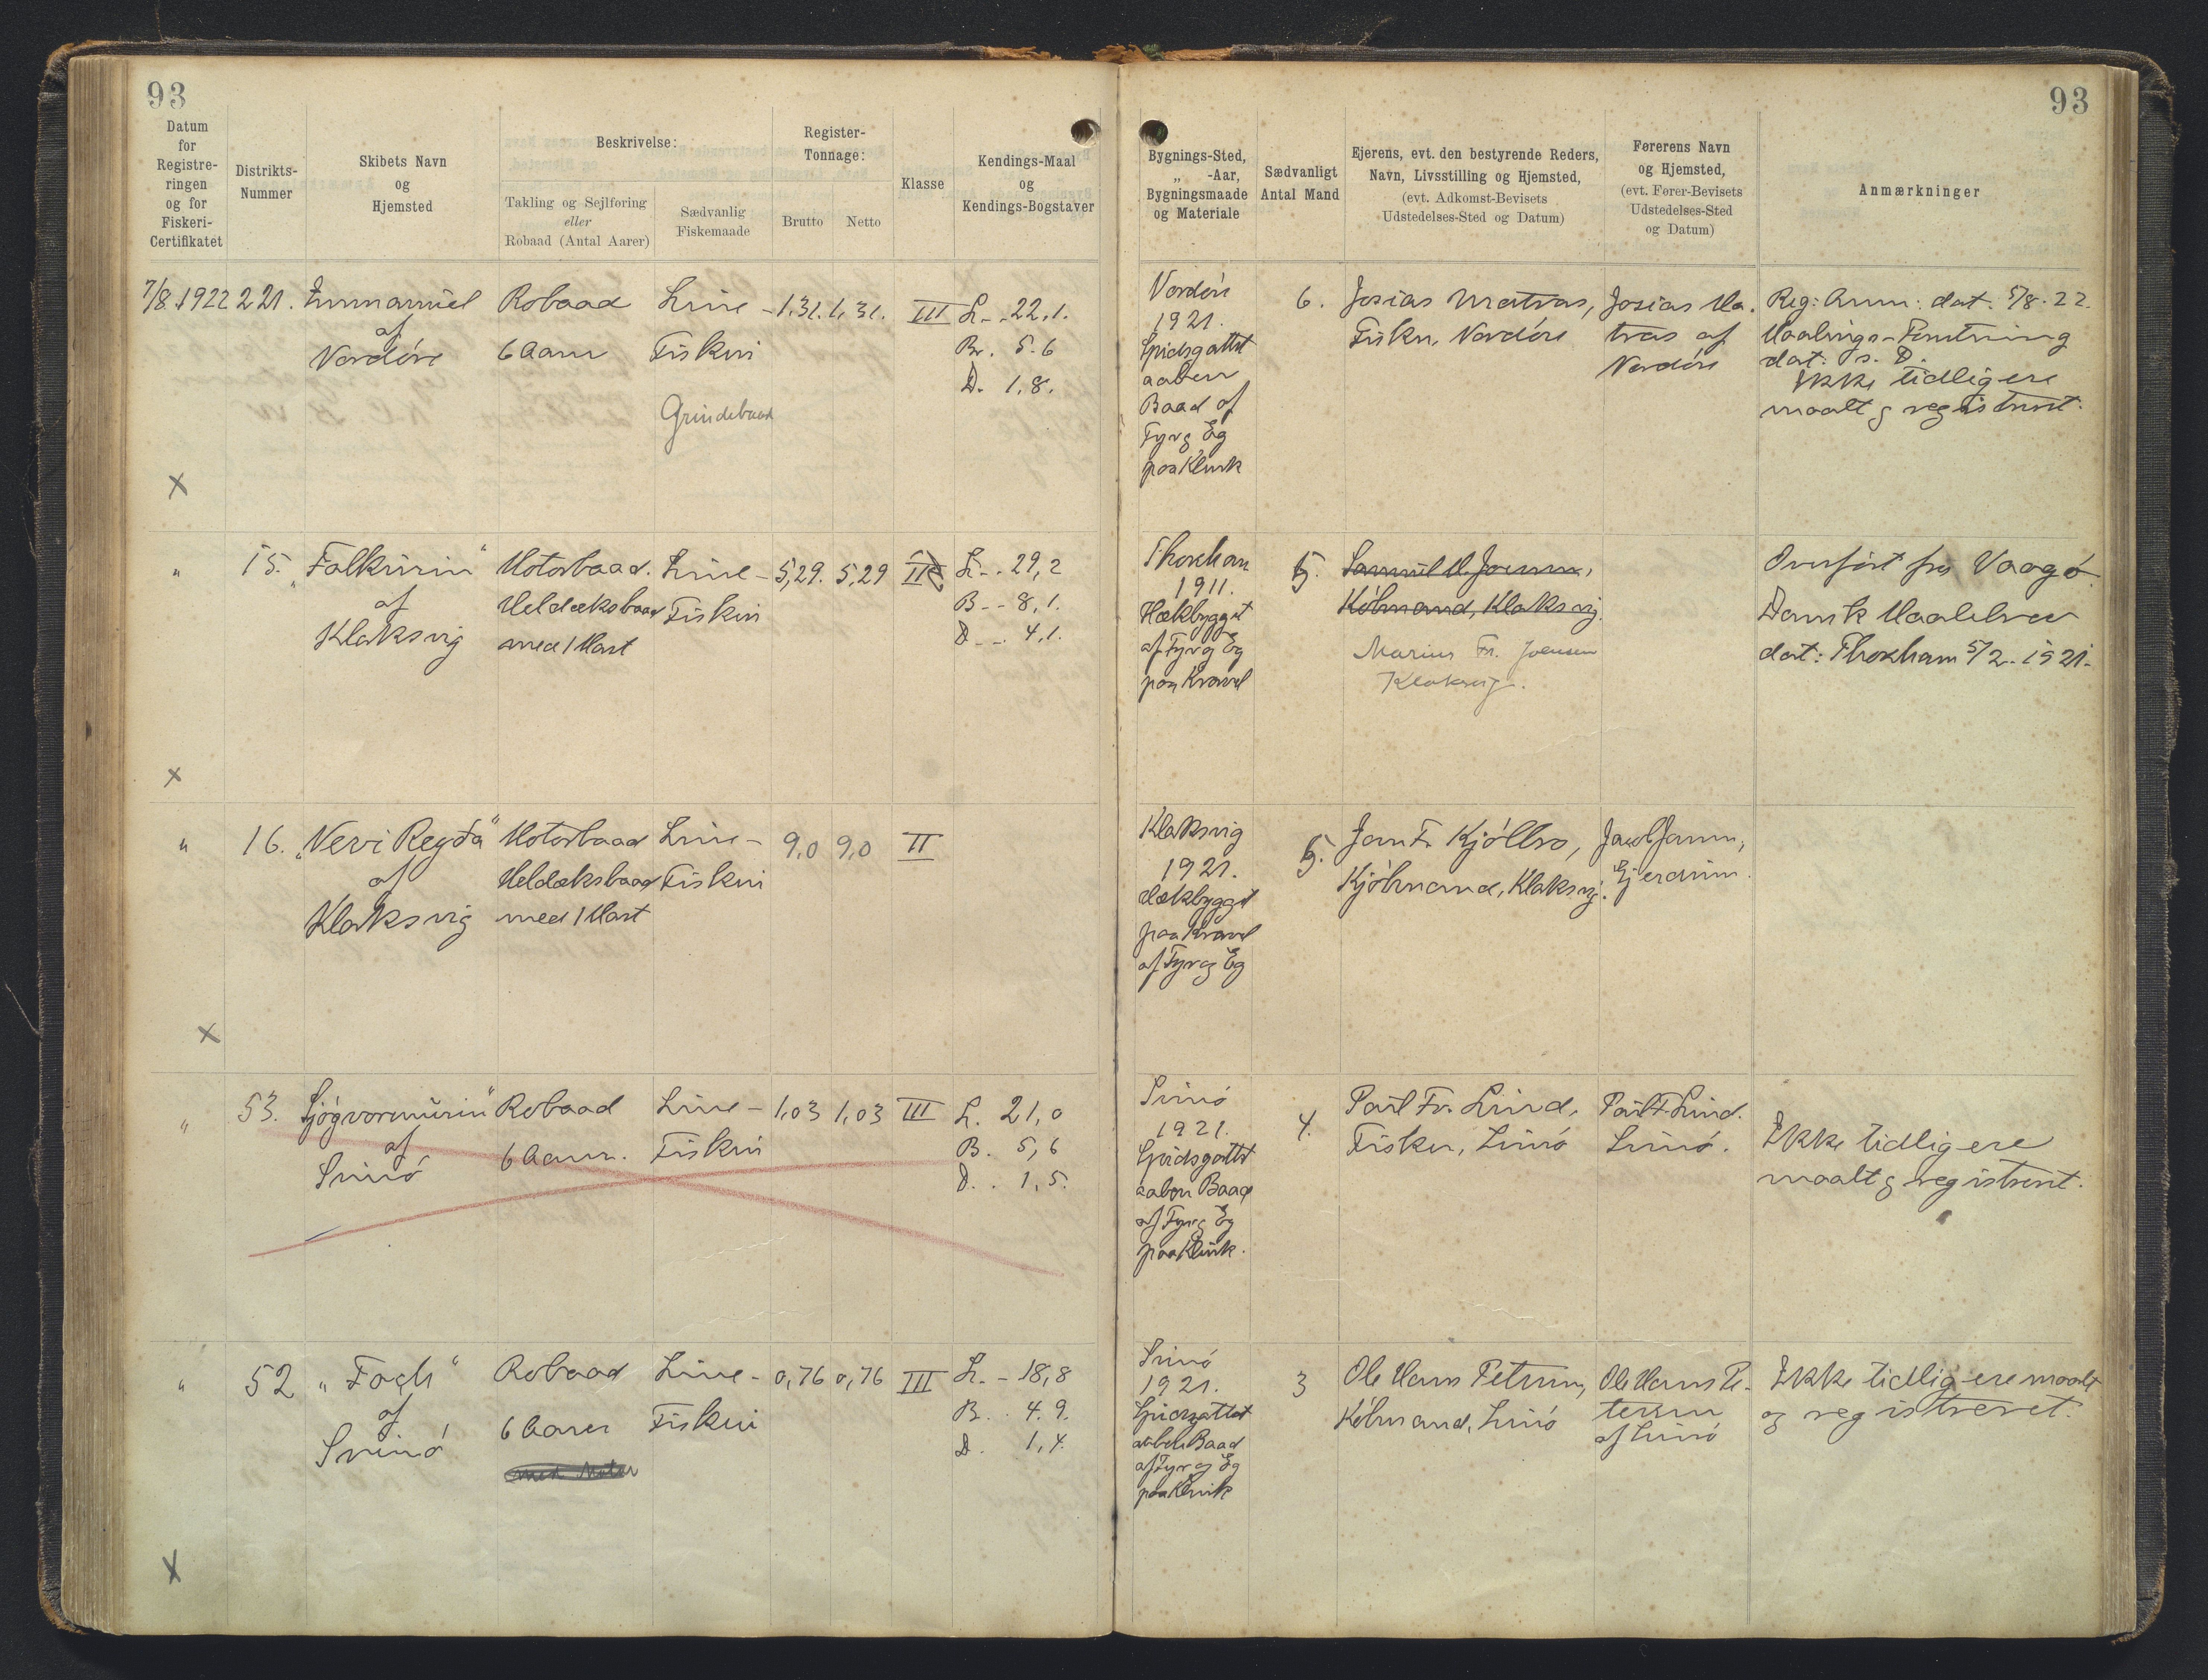 93
93
Datum
for
Registre-
ringen
og for
Fiskeri-
Certifikatet
Distrikts-
Nummer
Skibets Navn
og
Hjemsted
Beskrivelse:
Takling og Sejlføring
eller
Robaad (Antal Aarer)
Sædvanlig
Fiskemaade
Register-
Tonnage:
Brutto
Netto
Klasse
Kendings-Maal
og
Kendings-Bogstaver
Bygnings-Sted,
„ -Aar,
Bygningsmaade
og Materiale
Sædvanligt
Antal Mand
Ejerens, evt. den bestyrende Reders,
Navn, Livsstilling og Hjemsted,
(evt. Adkomst-Bevisets
Udstedelses-Sted og Datum)
Førerens Navn
og Hjemsted,
(evt. Fører-Bevisets
Udstedelses-Sted
og Datum)
Anmærkninger
7/8.1922
221.
Emmanuel
af
Nordöre
Robaad
6 Aarer
Line
Fiskeri
Grindebaad
1,31.
1,31.
III
L. - . 22,1.
Br. 5.6
D. 1,8.
Nordöre
1921.
Spidsgattet
aaben
Baad af
Fyr og Eg
paa Klink
6.
Josias Matras,
Fisker, Nordöre
Josias Ma-
tras af
Nordöre
Reg: Anm: dat. 5/8.22.
Maalings-Forretning
dat: s. D.
Ikke tidligere
maalt og registreret.
"
15.
„Falkurin"
af
Klaksvig
Motorbaad.
Heldæksbaad
med 1 Mast
Line -
Fiskeri
5,29.
5,29
II
L. - . 29,2
B - - 8,1.
D - . 4,1.
Thorshavn
1911.
Dækbygget
af Fyr og Eg
paa Kravel
5.
Samuel M. Joensen,
Købmand, Klaksvig.
Marius Fr. Joensen
Klaksvig.
Overført fra Vaagø.
Dansk Maalebrev
dat: Thorshavn 5/2. 1921.
"
16.
„Nevi Regða"
af
Klaksvig
Motorbaad
Heldæksbaad
med 1 Mast
Line -
Fiskeri
9,0
9,0
II
Klaksvig
1921.
dækbygget
paa Kravel
af Fyr og Eg
5.
Jan F. Kjölbro,
Kjöbmand, Klaksvig.
Jacob Jensen,
"
53.
Sjógvormurin"
af
Svinó
Robaad
6 Aarer.
Line -
Fiskeri
1,03
1,03
III
L. 21,0
B. 5,6
D. . 1,5.
Svinó
1921.
Spidsgattet
aaben Baad
af Fyr og Eg
paa Klink.
4.
Poul Fr. Lind,
Fisker, Svinó
Poul F. Lind.
Svinó.
Ikke tidligere
maalt og registreret.
"
52
„Foch"
af
Svinó
Robaad
6 Aarer
med Motor
Line -
Fiskeri
0,76
0,76
III
L. - 18,8
B. . 4.9.
D. 1,4.
Svinó
1921.
Spidsgattet
aaben Baad
af Fyr og Eg
paa Klink
3
Ole Hans Petersen,
Købmand, Svinó
Ole Hans Pe-
tersen
af Svinó
Ikke tidligere maalt
og registreret.